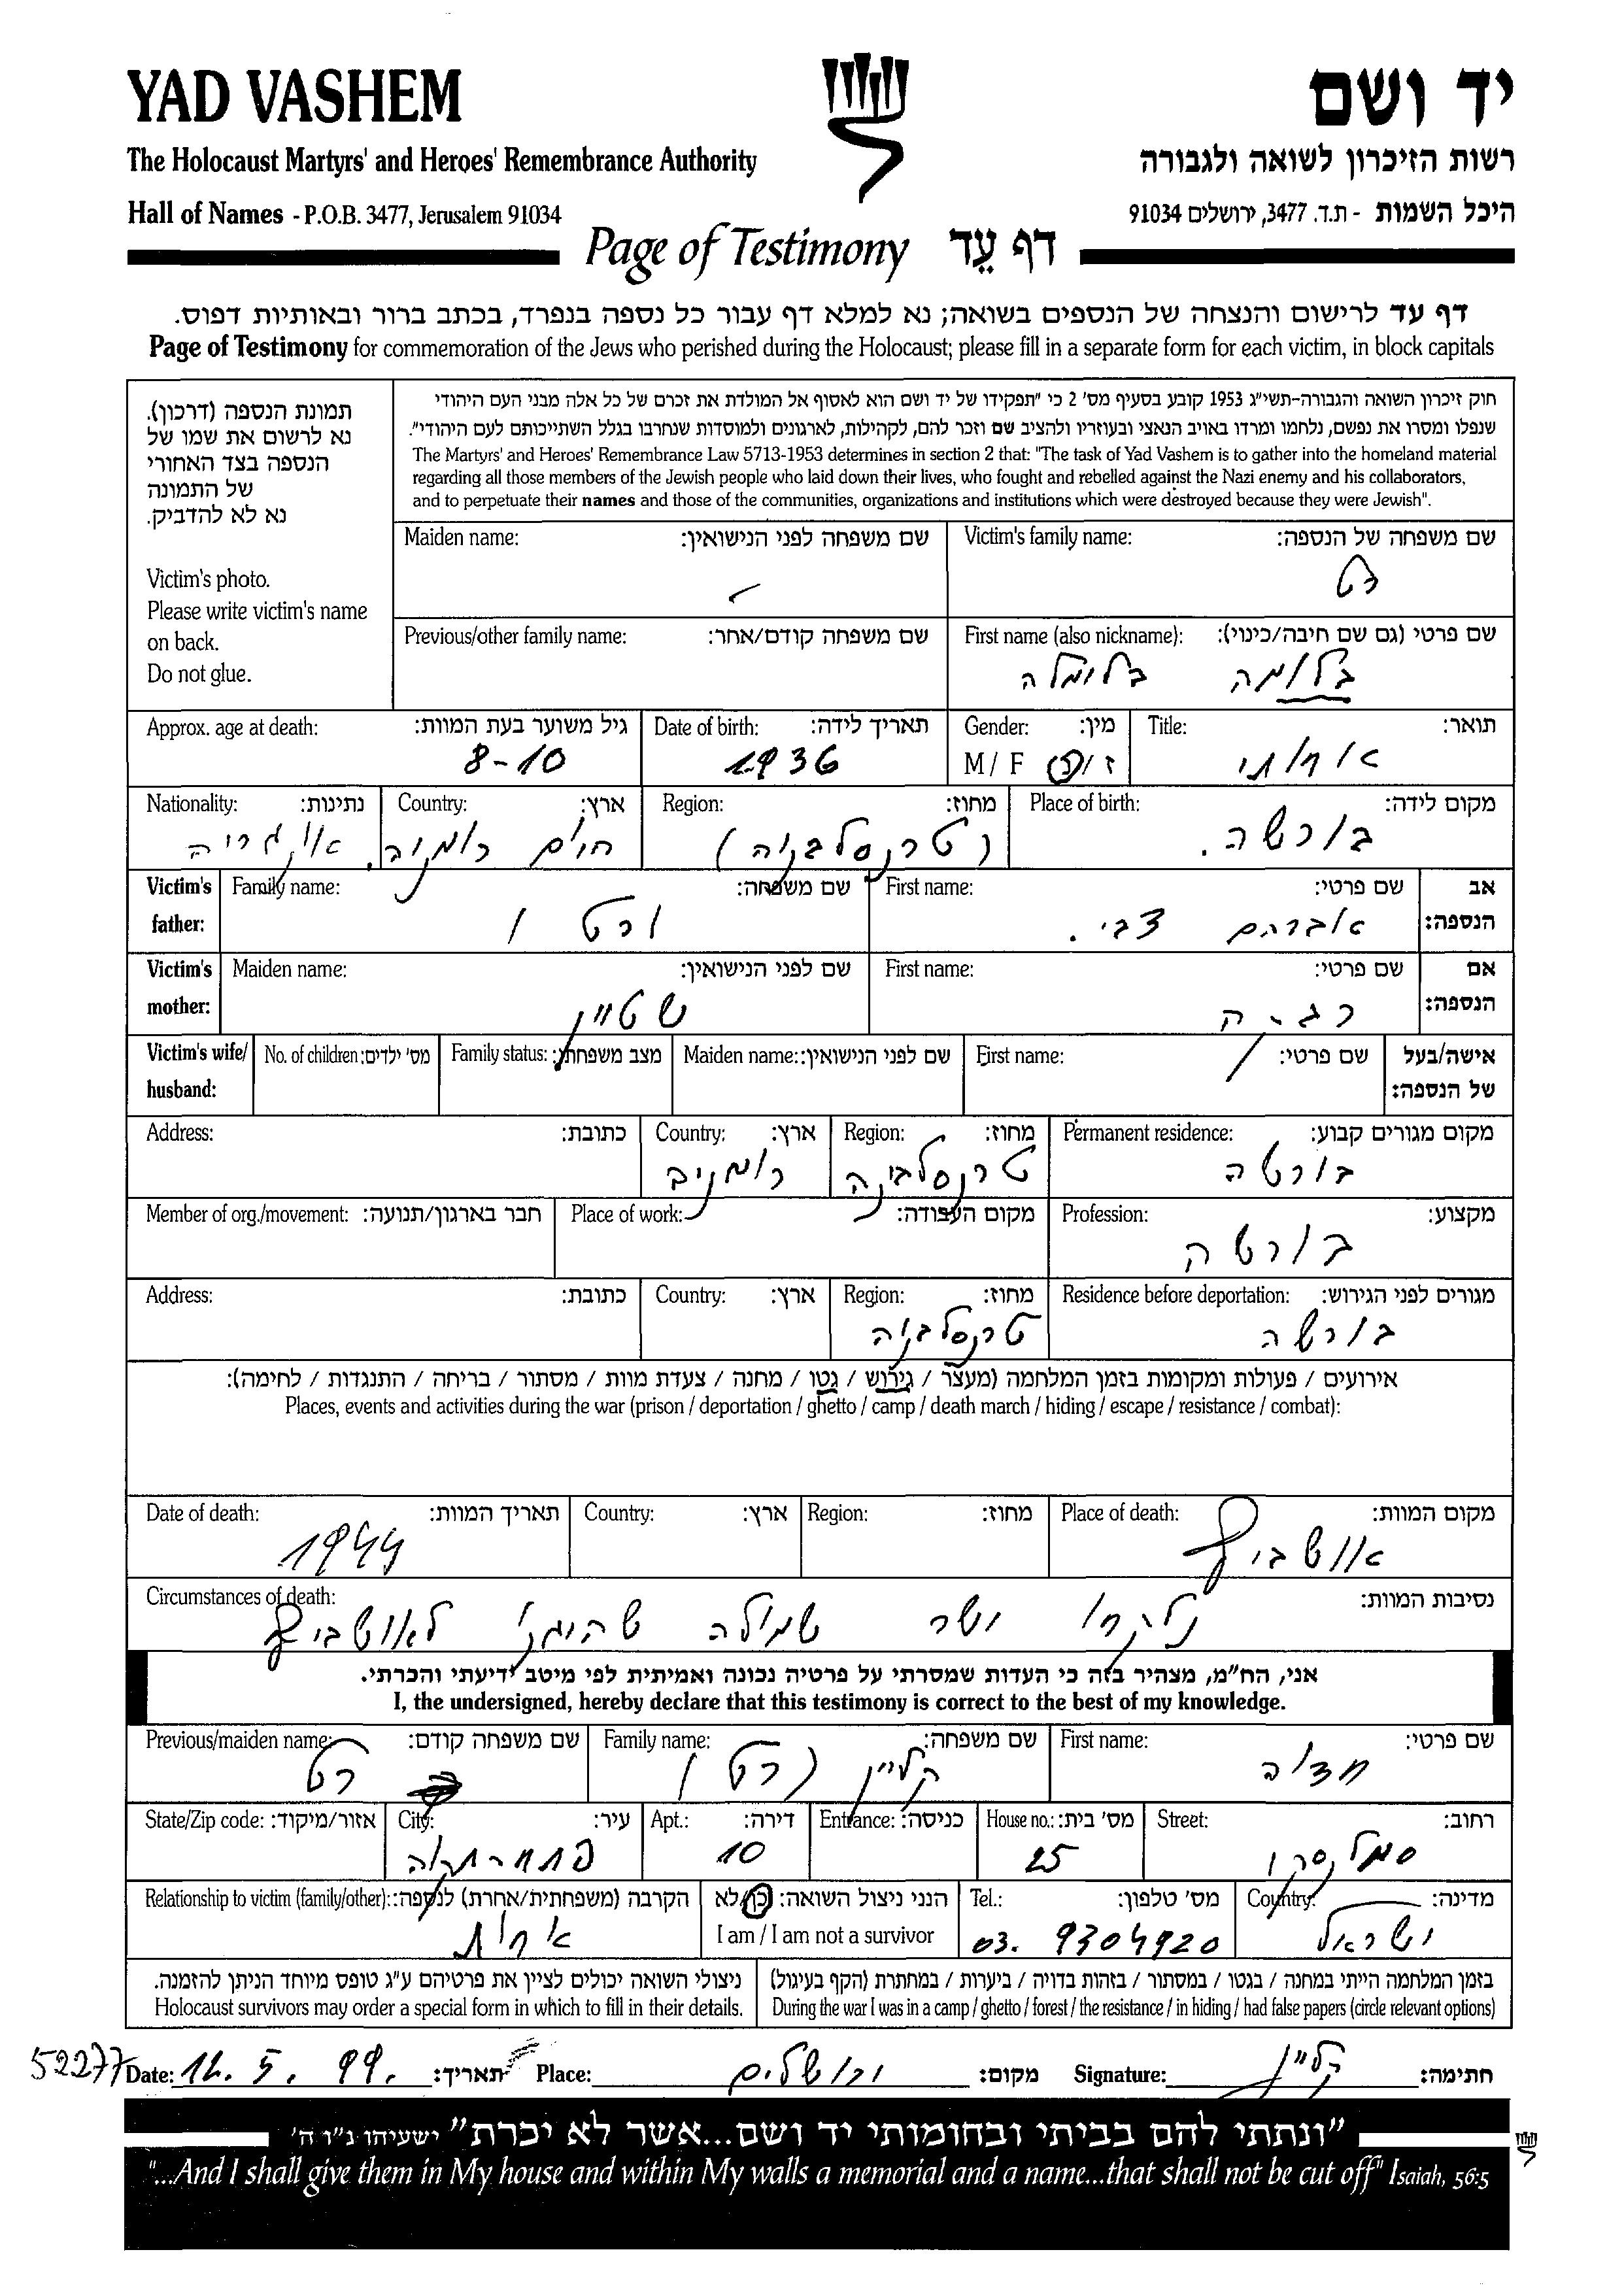 YAD VASHEM
יד ושם
The Holocaust Martyrs' and Heroes' Remembrance Authority
רשות הזיכרון לשואה ולגבורה
Hall of Names - P.O.B. 3477, Jerusalem 91034
היכל השמות - ת.ד. 3477, ירושלים 91034
Page of Testimony דף עֵד
דף עד לרישום והנצחה של הנספים בשואה; נא למלא דף עבור כל נספה בנפרד, בכתב ברור ובאותיות דפוס.
Page of Testimony for commemoration of the Jews who perished during the Holocaust; please fill in a separate form for each victim, in block capitals
תמונת הנספה (דרכון).
נא לרשום את שמו של
הנספה בצד האחורי
של התמונה
נא לא להדביק.
Victim's photo.
Please write victim's name
on back.
Do not glue.
חוק זיכרון השואה והגבורה-תשי"ג 1953 קובע בסעיף מס' 2 כי "תפקידו של יד ושם הוא לאסוף אל המולדת את זכרם של כל אלה מבני העם היהודי
שנפלו ומסרו את נפשם, נלחמו ומרדו באויב הנאצי ובעוזריו ולהציב שם וזכר להם, לקהילות, לארגונים ולמוסדות שנחרבו בגלל השתייכותם לעם היהודי".
The Martyrs' and Heroes' Remembrance Law 5713-1953 determines in section 2 that: "The task of Yad Vashem is to gather into the homeland material
regarding all those members of the Jewish people who laid down their lives, who fought and rebelled against the Nazi enemy and his collaborators,
and to perpetuate their names and those of the communities, organizations and institutions which were destroyed because they were Jewish".
Victim's family name: שם משפחה של הנספה:
רט
Maiden name: שם משפחה לפני הנישואין:
First name (also nickname): שם פרטי (גם שם חיבה/כינוי):
בלומה בלומלה
Previous/other family name: שם משפחה קודם/אחר:
Title: תואר:
אחותי
Gender: מין:
M / F ז / נ
Date of birth: תאריך לידה:
1936
Approx. age at death: גיל משוער בעת המוות:
8-10
Place of birth: מקום לידה:
בורשה.
Region: מחוז:
(טרנסלבניה)
Country: ארץ:
רומניה.
Nationality: נתינות:
Victim's father: אב הנספה:
First name: שם פרטי:
אברהם צבי.
Family name: שם משפחה:
Victim's mother: אם הנספה:
First name: שם פרטי:
Maiden name: שם לפני הנישואין:
שטיין
Victim's wife/ husband: אישה/בעל של הנספה:
First name: שם פרטי:
Maiden name: שם לפני הנישואין:
Family status: מצב משפחתי:
No. of children: מס' ילדים:
Permanent residence: מקום מגורים קבוע:
בורשה
Region: מחוז:
טרנסלבניה
Country: ארץ:
רומניה
Address: כתובת:
Profession: מקצוע:
בורשה
Place of work: מקום העבודה:
Member of org./movement: חבר בארגון/תנועה:
Residence before deportation: מגורים לפני הגירוש:
בורשה
Region: מחוז:
טרנסלבניה
Country: ארץ:
Address: כתובת:
אירועים / פעולות ומקומות בזמן המלחמה (מעצר / גירוש / גטו / מחנה / צעדת מוות / מסתור / בריחה / התנגדות / לחימה):
Places, events and activities during the war (prison / deportation / ghetto / camp / death march / hiding / escape / resistance / combat):
Place of death: מקום המוות:
אוושביץ
Region: מחוז:
Country: ארץ:
Date of death: תאריך המוות:
1944
Circumstances of death: נסיבות המוות:
לאושביץ
אני, הח"מ, מצהיר בזה כי העדות שמסרתי על פרטיה נכונה ואמיתית לפי מיטב ידיעתי והכרתי.
I, the undersigned, hereby declare that this testimony is correct to the best of my knowledge.
First name: שם פרטי:
Family name: שם משפחה:
קליין (רט)
Previous/maiden name: שם משפחה קודם:
רט
Street: רחוב:
סמלנסקי
House no.: מס' בית:
25
Entrance: כניסה:
Apt.: דירה:
10
City: עיר:
פתח-תקוה
State/Zip code: אזור/מיקוד:
Country: מדינה:
ישראל
Tel.: מס' טלפון:
03. 9304920
הנני ניצול השואה: כן/לא
I am / I am not a survivor
Relationship to victim (family/other): הקרבה (משפחתית/אחרת) לנספה:
אחות
בזמן המלחמה הייתי במחנה / בגטו / במסתור / בזהות בדויה / ביערות / במחתרת (הקף בעיגול)
During the war I was in a camp / ghetto / forest / the resistance / in hiding / had false papers (circle relevant options)
ניצולי השואה יכולים לציין את פרטיהם ע"ג טופס מיוחד הניתן להזמנה.
Holocaust survivors may order a special form in which to fill in their details.
52277
Date: 12. 5. 99. תאריך:
Place: ירושלים מקום:
Signature: קליין חתימה:
"ונתתי להם בביתי ובחומותי יד ושם...אשר לא יכרת" ישעיהו נ"ו ה'
"...And I shall give them in My house and within My walls a memorial and a name...that shall not be cut off" Isaiah, 56:5